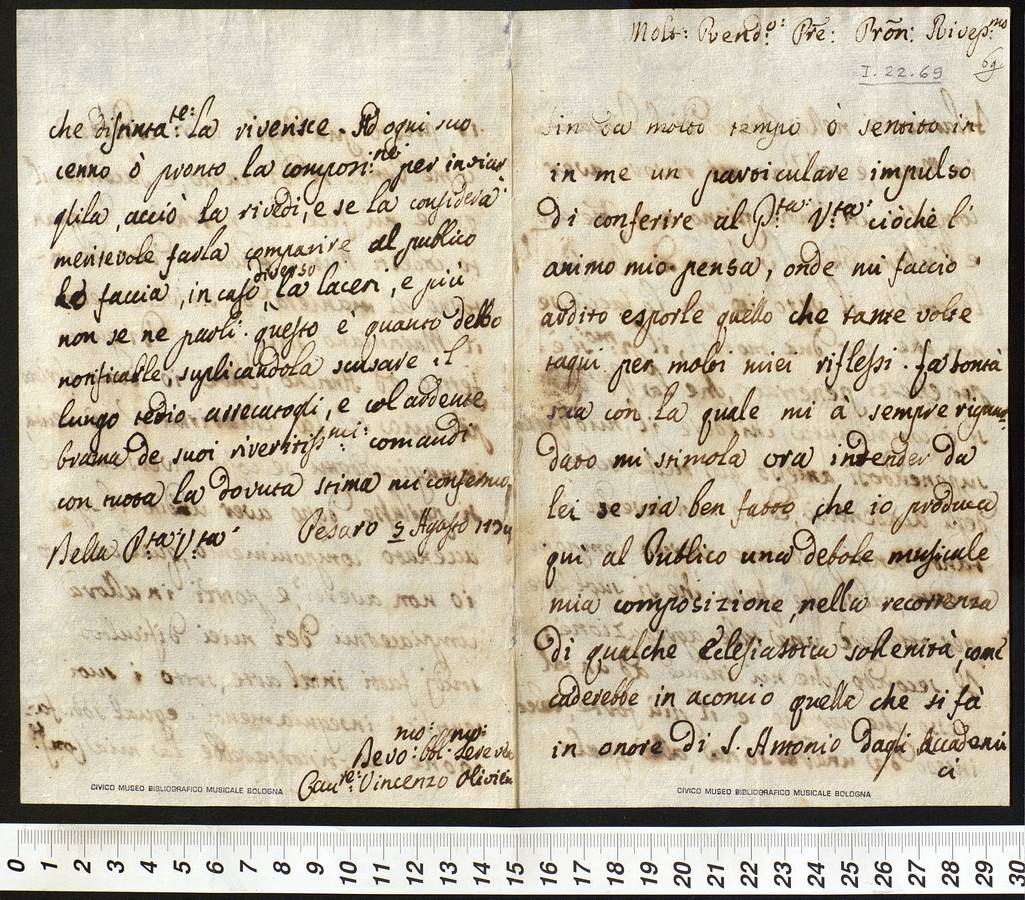 Molt: Rend:º Prē: Prōn: Rivess:mo
69
I. 22. 69
Sin da molto tempo ò sentito in
in me un particulare impulso
di conferire al P:ta V:ta ciòchè l'
animo mio pensa, onde mi faccio
ardito esporle quello che tante volte
taqui per molti miei riflessi. La bontà
sua con la quale mi à sempre riguar
dato mi stimola ora intender da
lei se sia ben fatto, che io produca
quì al Publico una debole musicale
mia composizione, nella recorrenza
di qualche Eclesiastica sollenità, come
caderebbe in aconcio quella che si fà
in onore di S. Antonio dagli Accademi
ci
CIVICO MUSEO BIBLIOGRAFICO MUSICALE BOLOGNA
che distinta:te: la riverisce. Ad ogni suo
cenno ò pronto la composi:ne: per inviar
glila, acciò la rivedi, e se la considera
meritevole farla comparire al publico
lo faccia, in caso diverso la laceri, e più
non se ne parli. questo è quanto debbo
notificarle, suplicandola scusare il
lungo tedio arrecatogli, e col ardente
brama de suoi riveritiss:mi: comandi
con tutta la dovuta stima mi confermo
Della P:ta V:ta Pesaro 2 Agosto
mo: mo:
Devo: Obl: Serevdo
Cau:re: Vincenzo Olivieri
CIVICO MUSEO BIBLIOGRAFICO MUSICALE BOLOGNA
0 1 2 3 4 5 6 7 8 9 10 11 12 13 14 15 16 17 18 19 20 21 22 23 24 25 26 27 28 29 30